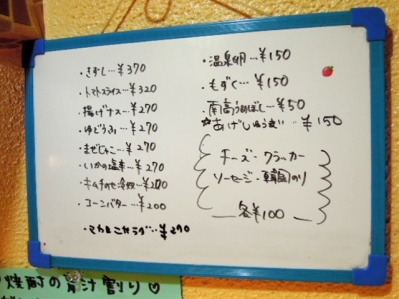 ・きずし…¥370
・トマトスライス…¥320
・揚げナス…¥270
・ゆどうふ…¥270
・まぜじゃこ…¥270
・いかの塩辛…¥270
・キムチのせ冷奴…¥270
・コーンバター…¥200
¥270
・温泉卵…¥150
・もずく…¥150
・南高うめぼし…¥50
¥150
チーズ・クラッカー
ソーセージ・韓国のり
各¥100
焼酎の青汁割り♡